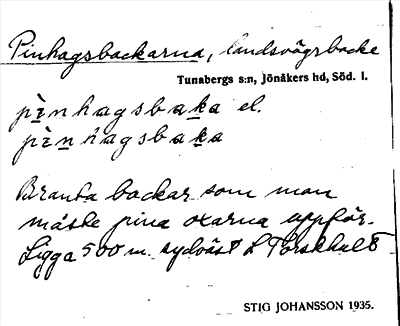 Pinhagsbackarna, landsvägsbacke
Tunabergs s:n, Jönåkers hd, Söd. l.
pìnhagsbaka el.
pìnhagsbaka
Branta backar som man
måste pina oxarna uppför.
Ligga 500 m. sydväst Torskhult
STIG JOHANSSON 1935.